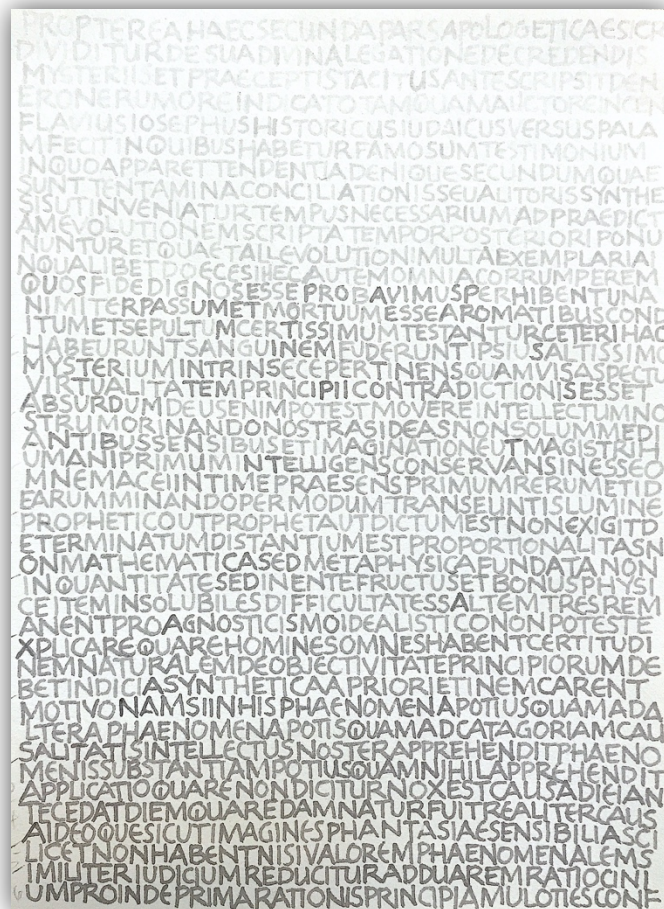 PROPTEREAHAECSECUNDAPARSAPOLOGETICAESICR
DIVIDITURDESUADIVINALEGATIONEDECREDENDIS
MYSTERIISETPRAECEPTISTACITUSANTESCRIPSITDEN
ERONERUMOREINDICATOTAMQUAMAUCTORENCEN
FLAVIUSIOSEPHUSHISTORICUSIUDAICUSVERSUSPALA
MFECITINQUIBUSHABETURFAMOSUMTESTIMONIUM
INQUOAPPARETTENDENTIADENIQUESECUNDUMQUAE
SUNTTENTAMINACONCILIATIONISSEUALITORISSYNTHE
SISUTINVENATURTEMPUSNECESSARIUMADPRAEDICT
AMEVOLUTIONEMSCRIPTATEMPORPOSTERIORIPONU
NUNTURETQUAETALLEVOLUTIONIMULTAEXEMPLARIAI
NQUALIBETDOECESIHECAUTEMOMNIACORRUMPEREM
QUOSFIDEDIGNOSESSEPROBAVIMUSPERHIBENTUNA
NIMITERPASSUMETMORTUUMESSEAROMATIBUSCOND
ITUMETSEPULTUMCERTISSIMUMTESTANTURCETERIHAC
HABEURUNTSANGUINEMFUDERUNTIPSIUSALTISSIMO
MYSTERIUMINTRINSECEPERTINENSQUAMVISASPECTU
VIRTUALITATEMPRINCIPIICONTRADICTIONISESSET
ABSURDUMDEUSENIMPOTESTMOVEREINTELLECTUMNO
STRUMORINANDONOSTRASIDEASNONSOLUMMEDI
ANTIBUSSENSIBUSETIMAGINATIONEUTMAGISTRIH
UMANIPRIMUMINTELLIGENSCONSERVANSINESSEO
MNEMACEIINTIMEPRAESENSPRIMUMRERUMETID
EARUMMINANDOPERMODUMTRANSEUNTISLUMINE
PROPHETICOUTPROPHETAUTDICTUMESTNONEXIGITD
ETERMINATUMDISTANTIUMESTPROPORTIONALITASN
ONMATHEMATICASEDMETAPHYSICAFUNDATANON
INQUANTITATESEDINENTEFRUCTUSETBONUSPHYSI
CEITEMINSOLUBILESDIFFICULTATESSALTEMTRESREM
ANENTPROAGNOSTICISMOIDEALISTICONONPOTESTE
XPLICAREQUAREHOMINESOMNESHABENTCERTITUDI
NEMNATURALEMDEOBJECTIVITATEPRINCIPIORUMDE
BETINDICIASYNTHETICAAPRIORIETINEMCARENT
MOTIVONAMSIINHISPHAENOMENAPOTIUSQUAMADA
LTERAPHAENOMENAPOTISQUAMADCATAGORIAMCAU
SALITATISINTELLECTUSNOSTERAPPREHENDITPHAENO
MENISSUBSTANTIAMPOTIUSQUAMNIHILAPPREHENDIT
APPLICATIOQUARENONDICITURNOXESTCAUSADIEIAN
TECEDATDIEMQUAREDAMNATURFUITREALITERCAUS
AIDEOQUESICUTIMAGINESPHANTASIAESENSIBILIASCI
LICETNONHABENTNISIVALOREMPHAENOMENALEMS
IMILITERIUDICIUMREDUCITURADDUAREMRATIOCINI
UMPROINDEPRIMARATIONISPRINCIPIAMULOTIESCONF